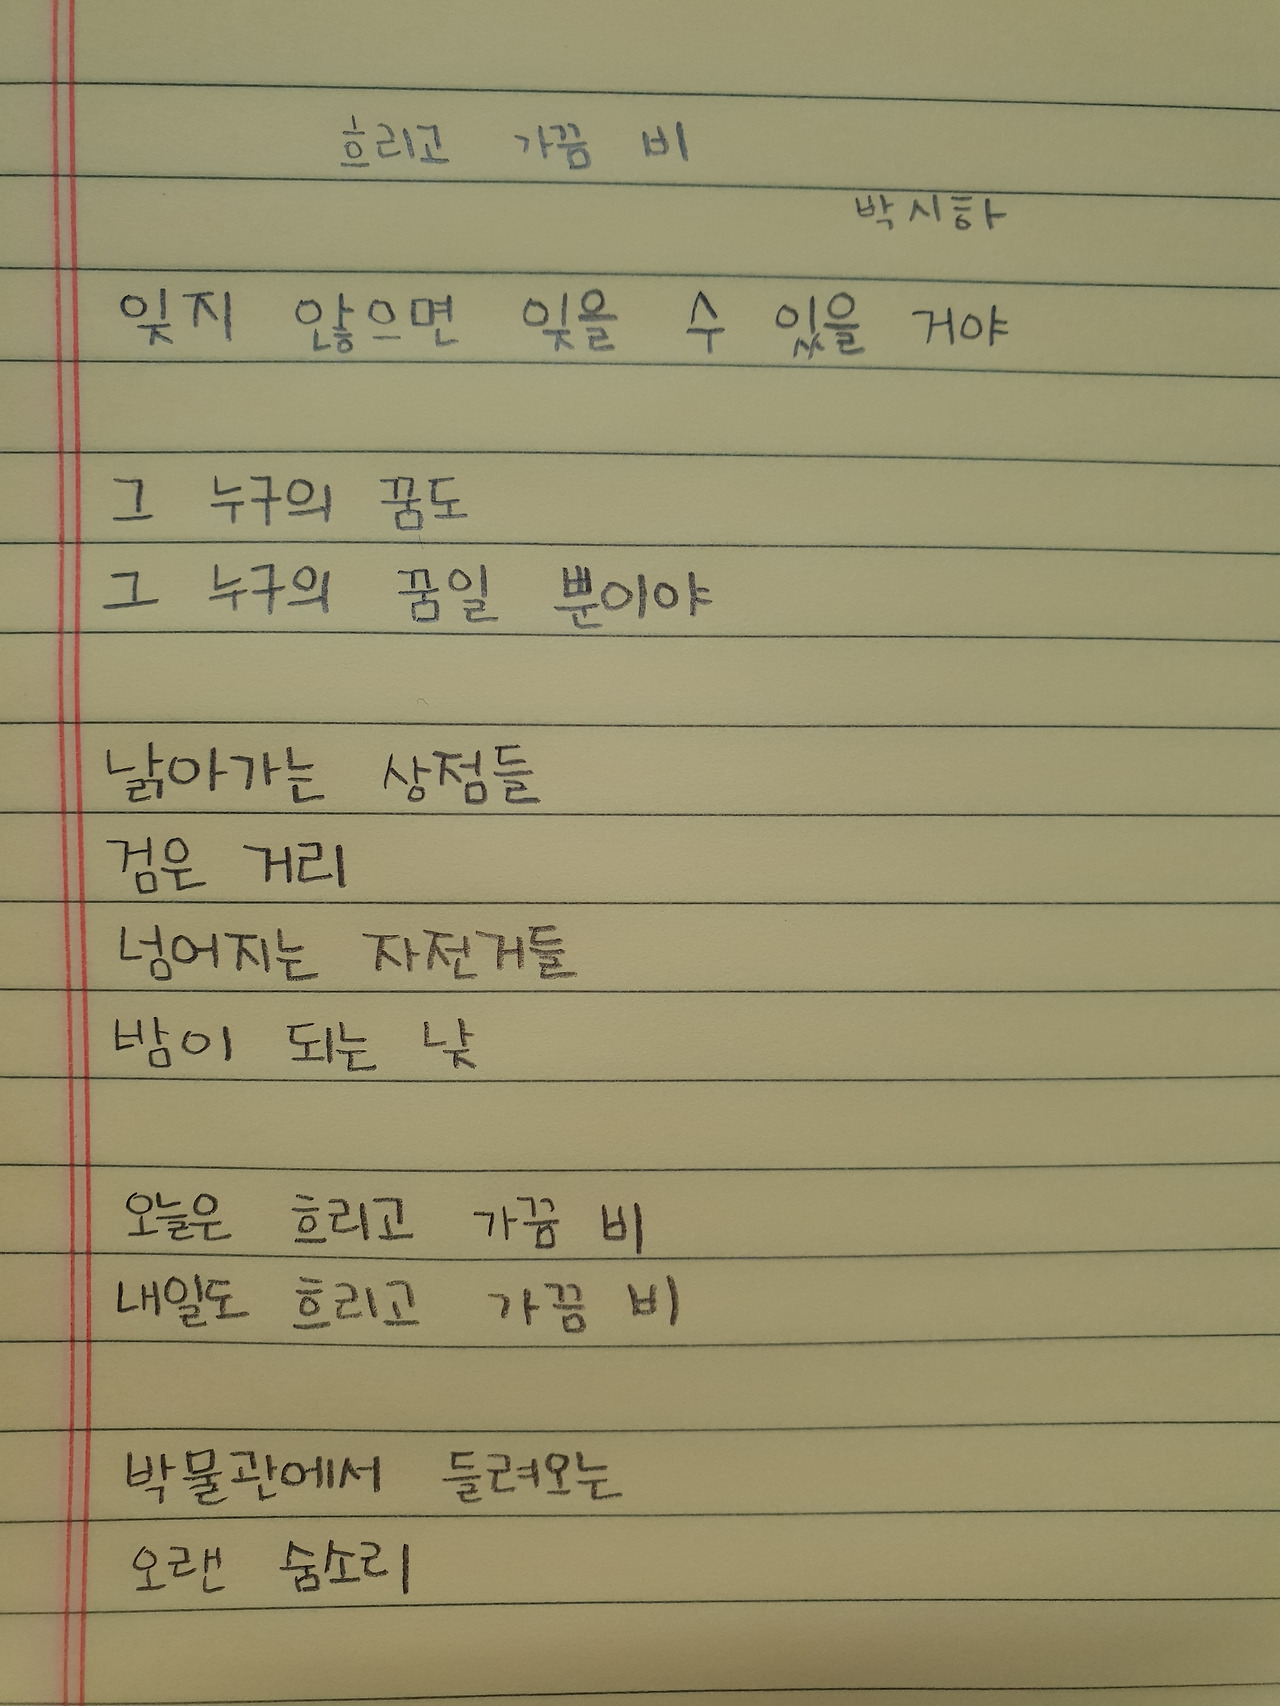 흐리고 가끔 비
박시하
잊지 않으면 잊을 수 있을 거야
그 누구의 꿈도
그 누구의 꿈일 뿐이야
낡아가는 상점들
검은 거리
넘어지는 자전거들
밤이 되는 낮
오늘은 흐리고 가끔 비
내일도 흐리고 가끔 비
박물관에서 들려오는
오랜 숨소리